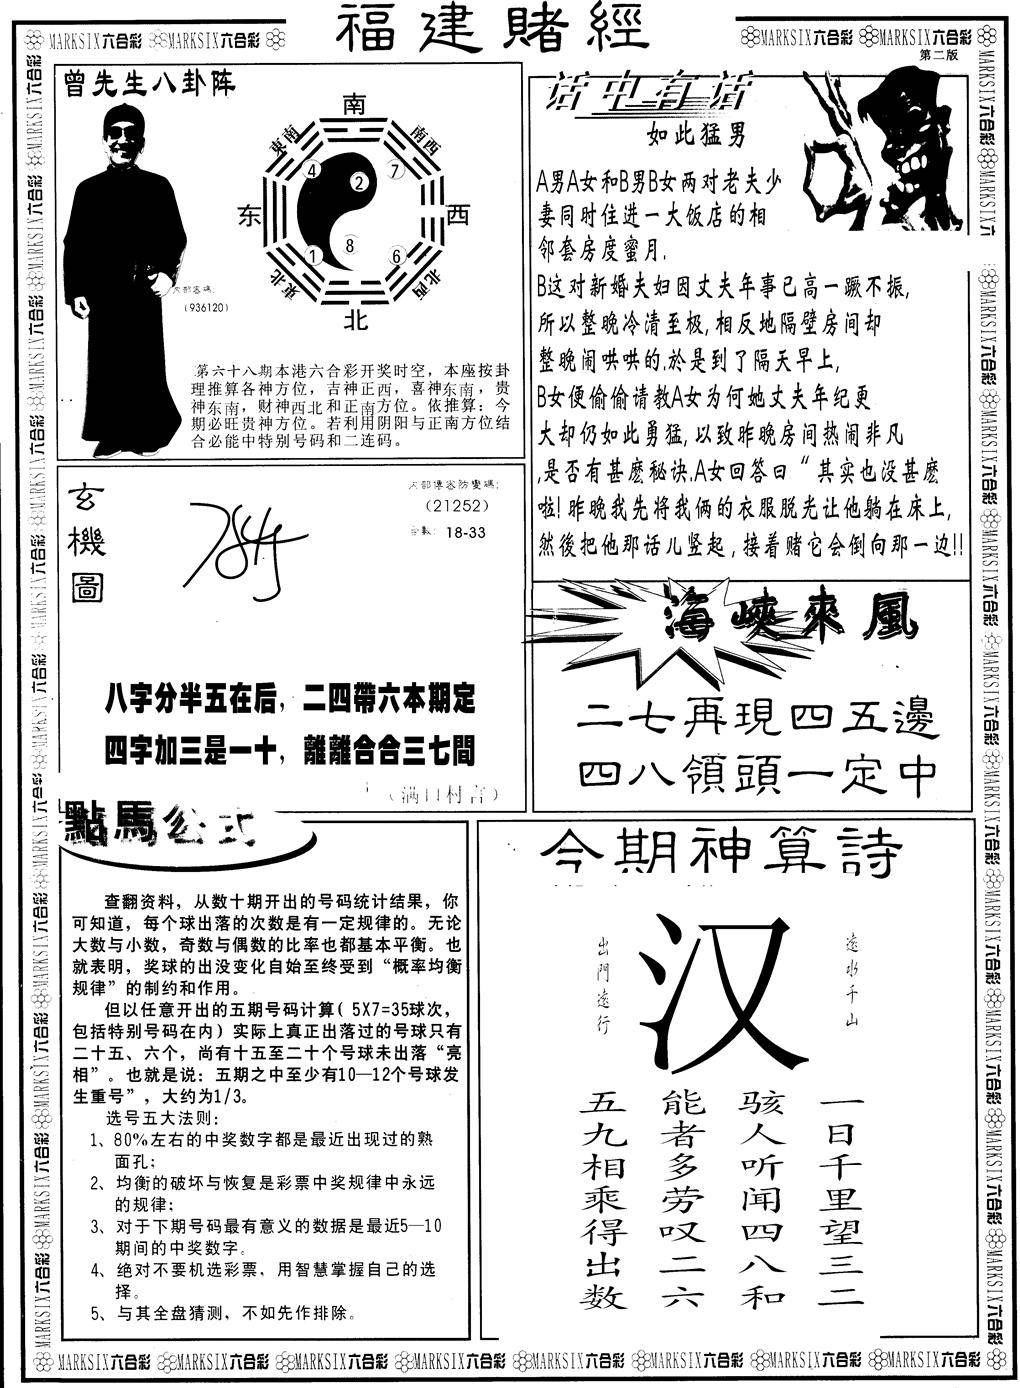 福建賭經
MARKSIX六合彩 MARKSIX六合彩
MARKSIX六合彩 MARKSIX六合彩
第二版
曾先生八卦阵
南
東南
南西
东
西
東北
北西
北
4
2
7
8
1
6
内部密碼:
(936120)
第六十八期本港六合彩开奖时空，本座按卦
理推算各神方位，吉神正西，喜神东南，贵
神东南，财神西北和正南方位。依推算：今
期必旺贵神方位。若利用阴阳与正南方位结
合必能中特别号码和二连码。
话中有话
如此猛男
A男A女和B男B女两对老夫少
妻同时住进一大饭店的相
邻套房度蜜月.
B这对新婚夫妇因丈夫年事已高一蹶不振,
所以整晚冷清至极,相反地隔壁房间却
整晚闹哄哄的.於是到了隔天早上,
B女便偷偷请教A女为何她丈夫年纪更
大却仍如此勇猛,以致昨晚房间热闹非凡
,是否有甚麽秘诀.A女回答曰“其实也没甚麽
啦!昨晚我先将我俩的衣服脱光让他躺在床上,
然後把他那话儿竖起,接着赌它会倒向那一边!!
玄機圖
内部傳密防變碼:
(21252)
18-33
八字分半五在后，二四帶六本期定
四字加三是一十，離離合合三七間
（满口村言）
海峽來風
二七再現四五邊
四八領頭一定中
點馬公式
查翻资料，从数十期开出的号码统计结果，你
可知道，每个球出落的次数是有一定规律的。无论
大数与小数，奇数与偶数的比率也都基本平衡。也
就表明，奖球的出没变化自始至终受到“概率均衡
规律”的制约和作用。
但以任意开出的五期号码计算( 5X7=35球次，
包括特别号码在内) 实际上真正出落过的号球只有
二十五、六个，尚有十五至二十个号球未出落“亮
相”。也就是说：五期之中至少有10—12个号球发
生重号”，大约为1/3。
选号五大法则:
1、80%左右的中奖数字都是最近出现过的熟
面孔;
2、均衡的破坏与恢复是彩票中奖规律中永远
的规律;
3、对于下期号码最有意义的数据是最近5—10
期间的中奖数字。
4、绝对不要机选彩票，用智慧掌握自己的选
择。
5、与其全盘猜测，不如先作排除。
今期神算詩
遠水千山
汉
出門遠行
一日千里望三二
骇人听闻四八和
能者多劳叹二六
五九相乘得出数
MARKSIX六合彩 MARKSIX六合彩 MARKSIX六合彩 MARKSIX六合彩 MARKSIX六合彩 MARKSIX六合彩 MARKSIX六合彩 MARKSIX六合彩